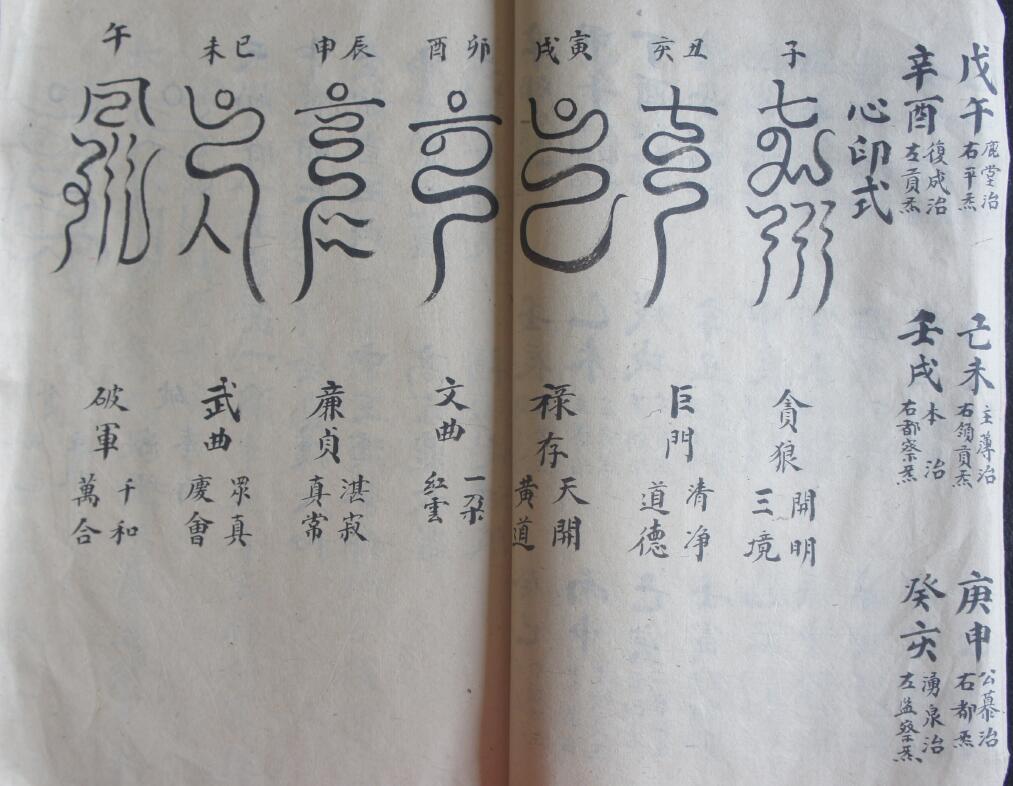 戊午 鹿堂治 右平炁
己未 主薄治 右領貢炁
庚申 公慕治 右都炁
辛酉 復成治 左貢炁
壬戌 本治 右都察炁
癸亥 湧泉治 左監察炁
心印式
子
貪狼 開明三境
丑亥
巨門 清净道德
寅戌
禄存 天開黄道
卯酉
文曲 一朶紅雲
辰申
廉貞 湛寂真常
巳未
武曲 眾真慶會
午
破軍 千和萬合